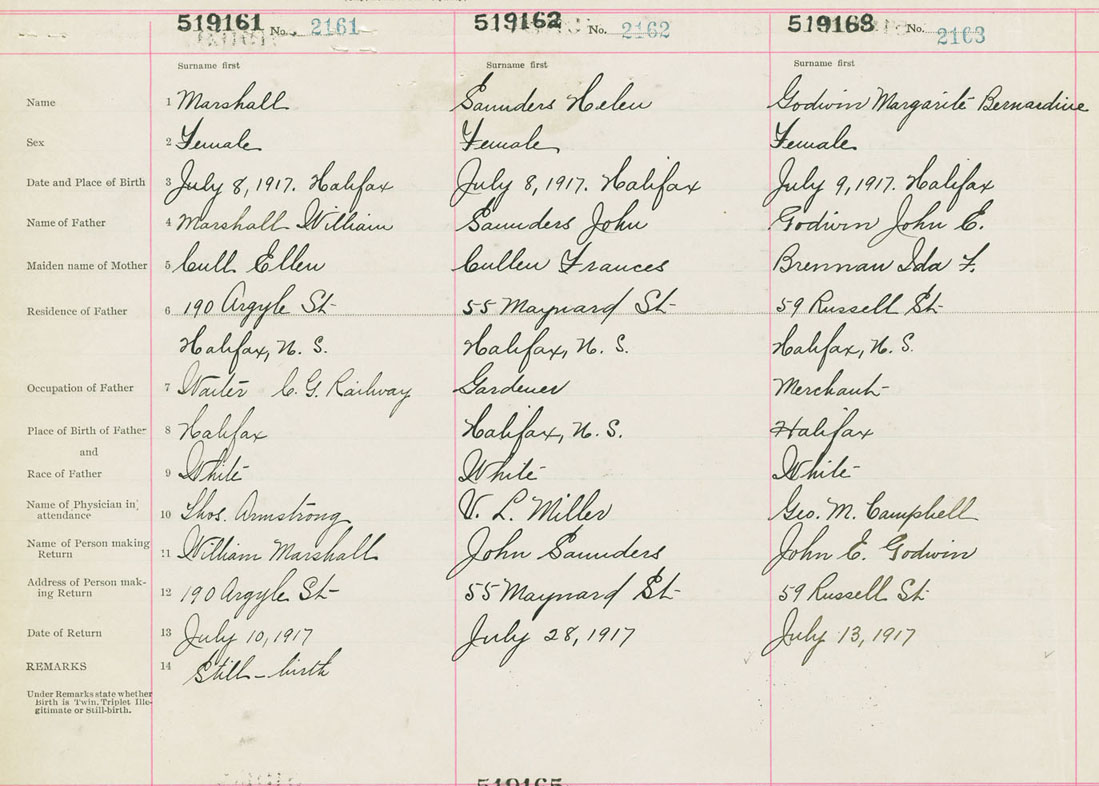 519161 No. 2161 519162 No. 2162 519163 No. 2163
Surname first Surname first Surname first
Name 1 Marshall Saunders Helen Godwin Margarite Bernardine
Sex 2 Female Female Female
Date and Place of Birth 3 July 8, 1917. Halifax July 8, 1917. Halifax July 9, 1917. Halifax
Name of Father 4 Marshall William Saunders John Godwin John E.
Maiden name of Mother 5 Cull Ellen Cullen Frances Brennan Ida F.
Residence of Father 6 190 Argyle St 55 Maynard St 59 Russell St
Halifax, N. S. Halifax, N. S. Halifax, N. S.
Occupation of Father 7 Waiter C. G. Railway Gardener Merchant
Place of Birth of Father 8 Halifax Halifax, N. S. Halifax
and
Race of Father 9 White White White
Name of Physician in attendance 10 Thos. Armstrong V. L. Miller Geo. M. Campbell
Name of Person making Return 11 William Marshall John Saunders John E. Godwin
Address of Person making Return 12 190 Argyle St 55 Maynard St 59 Russell St
Date of Return 13 July 10, 1917 July 28, 1917 July 13, 1917
REMARKS 14 Still-birth
Under Remarks state whether
Birth is Twin, Triplet Ille-
gitimate or Still-birth.
519165